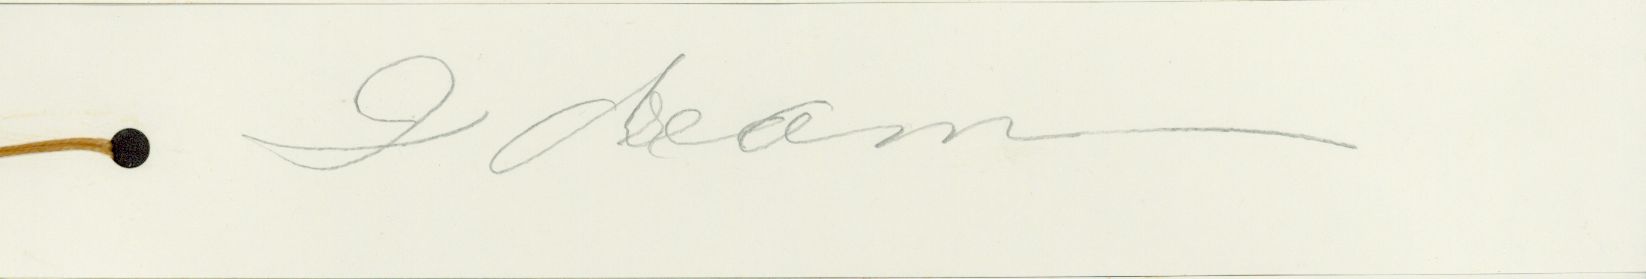 I dream